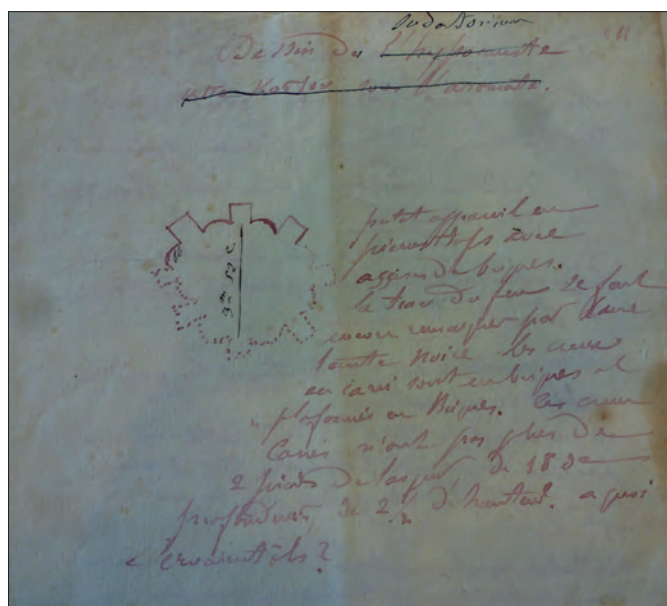 Sudatorium
Dessin du l'hypocauste
11
petit appareil en
pierres tufs avec
assises de briques.
la trace du feu se fait
encore remarquer par une
teinte noire les creux
en carré sont en briques et
plafonnés en Briques. Ces creux
Carrés n'ont pas plus de
2 pieds de largeur, de 18 de
profondeur, de 2 1/2 de hauteur. a quoi
servaient ils?
3m 52c